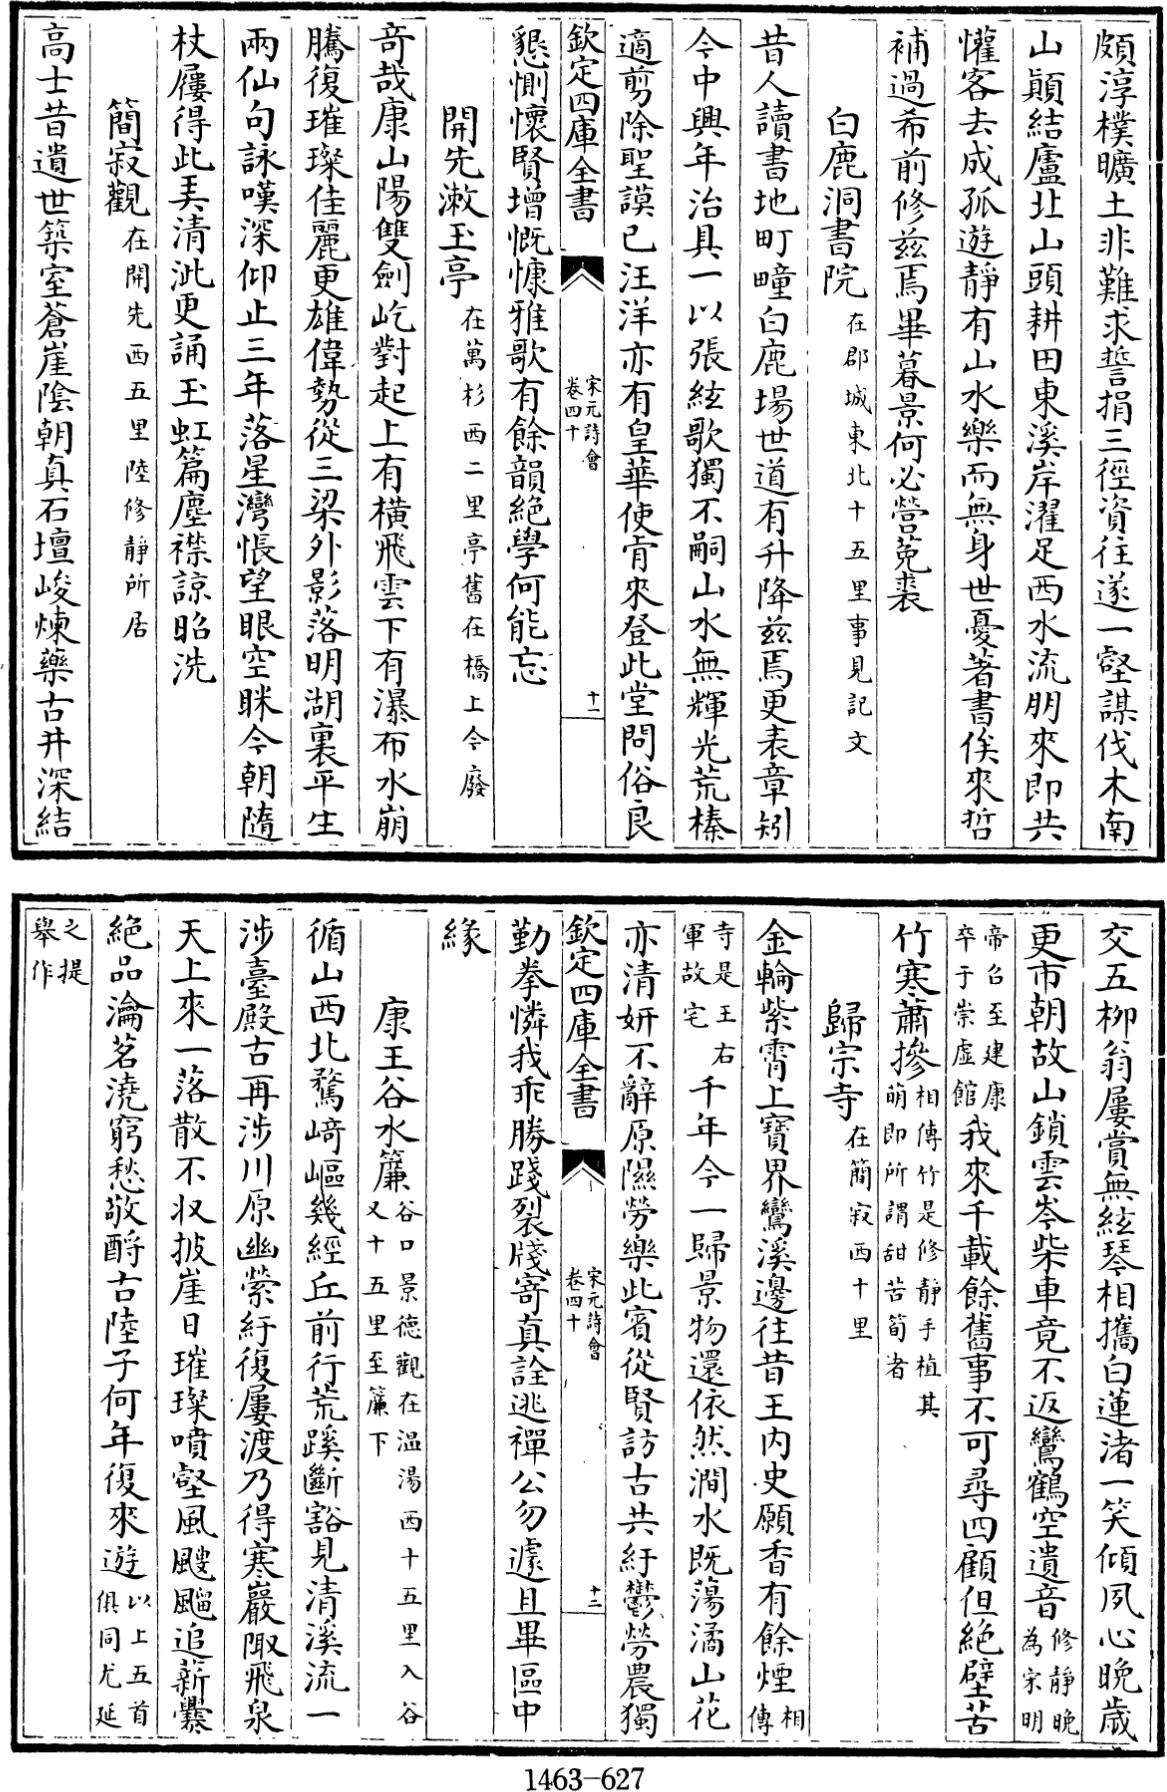 頗淳樸曠土非難求誓捐三徑資往遂一壑謀伐木南
山顛結廬北山頭耕田東溪岸濯足西水流朋來即共
懽客去成孤遊靜有山水樂而無身世憂著書俟來哲
補過希前修兹焉畢暮景何必營菟裘
白鹿洞書院在郡城東北十五里事見記文
昔人讀書地町疃白鹿場世道有升降兹焉更表章矧
今中興年治具一以張絃歌獨不嗣山水無輝光荒榛
適剪除聖謨已汪洋亦有皇華使肯來登此堂問俗良
欽定四庫全書
宋元詩會
卷四十
十一
懇惻懷賢增慨慷雅歌有餘韻絶學何能忘
開先漱玉亭在萬杉西二里亭舊在橋上今廢
竒哉康山陽雙劍屹對起上有橫飛雲下有瀑布水崩
騰復璀璨佳麗更雄偉勢從三梁外影落明湖裏平生
兩仙句詠嘆深仰止三年落星灣悵望眼空眯今朝隨
杖屨得此弄清泚更誦玉虹篇塵襟諒昭洗
簡寂觀在開先西五里陸修靜所居
高士昔遺世築室蒼崖陰朝真石壇峻煉藥古井深結
交五柳翁屢賞無絃琴相攜白蓮渚一笑傾夙心晚歲
更市朝故山鎖雲岑柴車竟不返鸞鶴空遺音修靜晚為宋明
帝召至建康卒于崇虛館我來千載餘舊事不可尋四顧但絶壁苦
竹寒蕭摻相傳竹是修靜手植其萌即所謂甜苦筍者
歸宗寺在簡寂西十里
金輪紫霄上寶界鸞溪邊往昔王内史願香有餘煙相傳
寺是王右軍故宅千年今一歸景物還依然澗水既蕩潏山花
亦清妍不辭原隰勞樂此賓從賢訪古共紆鬱勞農獨
欽定四庫全書
宋元詩會
卷四十
十二
勤拳憐我乖勝踐裂牋寄真詮逃禪公勿遽且畢區中
緣
康王谷水簾谷口景德觀在温湯西十五里入谷又十五里至簾下
循山西北騖崎嶇幾經丘前行荒蹊斷豁見清溪流一
涉臺殿古再涉川原幽縈紆復屢渡乃得寒巖陬飛泉
天上來一落散不收披崖日璀璨噴壑風颼飀追薪爨
絶品瀹茗澆窮愁敬酹古陸子何年復來遊以上五首俱同尤延
之提舉作
1463-627